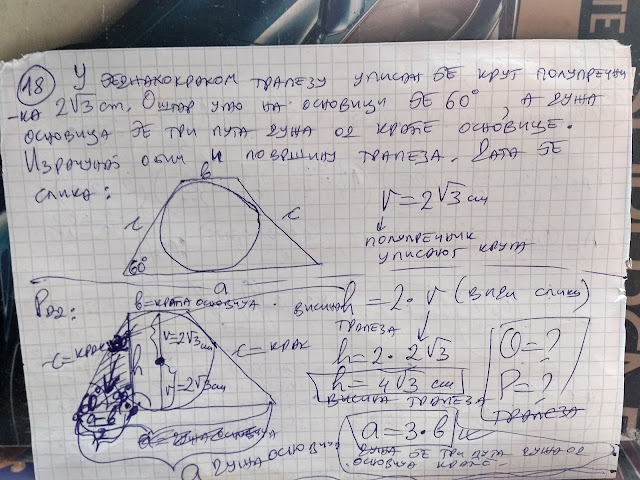 18 У ЈЕДНАКОКРАКОМ ТРАПЕЗУ УПИСАН ЈЕ КРУГ ПОЛУПРЕЧНИ
-КА 2√3 cm. ОШТАР УГАО НА ОСНОВИЦИ ЈЕ 60°, А ДУЖА
ОСНОВИЦА ЈЕ ТРИ ПУТА ДУЖА ОД КРАЋЕ ОСНОВИЦЕ.
ИЗРАЧУНАЈ ОБИМ И ПОВРШИНУ ТРАПЕЗА. ДАТА ЈЕ
СЛИКА:
b
c
c
60°
a
r = 2√3 cm
ПОЛУПРЕЧНИК
УПИСАНОГ КРУГА
b = КРАЋА ОСНОВИЦА
c = КРАК
h
r = 2√3 cm
r = 2√3 cm
c = КРАК
a ДУЖА ОСНОВИЦА
ВИСИНА
ТРАПЕЗА
h = 2 · r (ВИДИ СЛИКУ)
h = 2 · 2√3
h = 4√3 cm
ВИСИНА ТРАПЕЗА
O = ?
P = ?
ТРАПЕЗА
a = 3 · b
ДУЖА ЈЕ ТРИ ПУТА ДУЖА ОД
ОСНОВИЦА КРАЋЕ